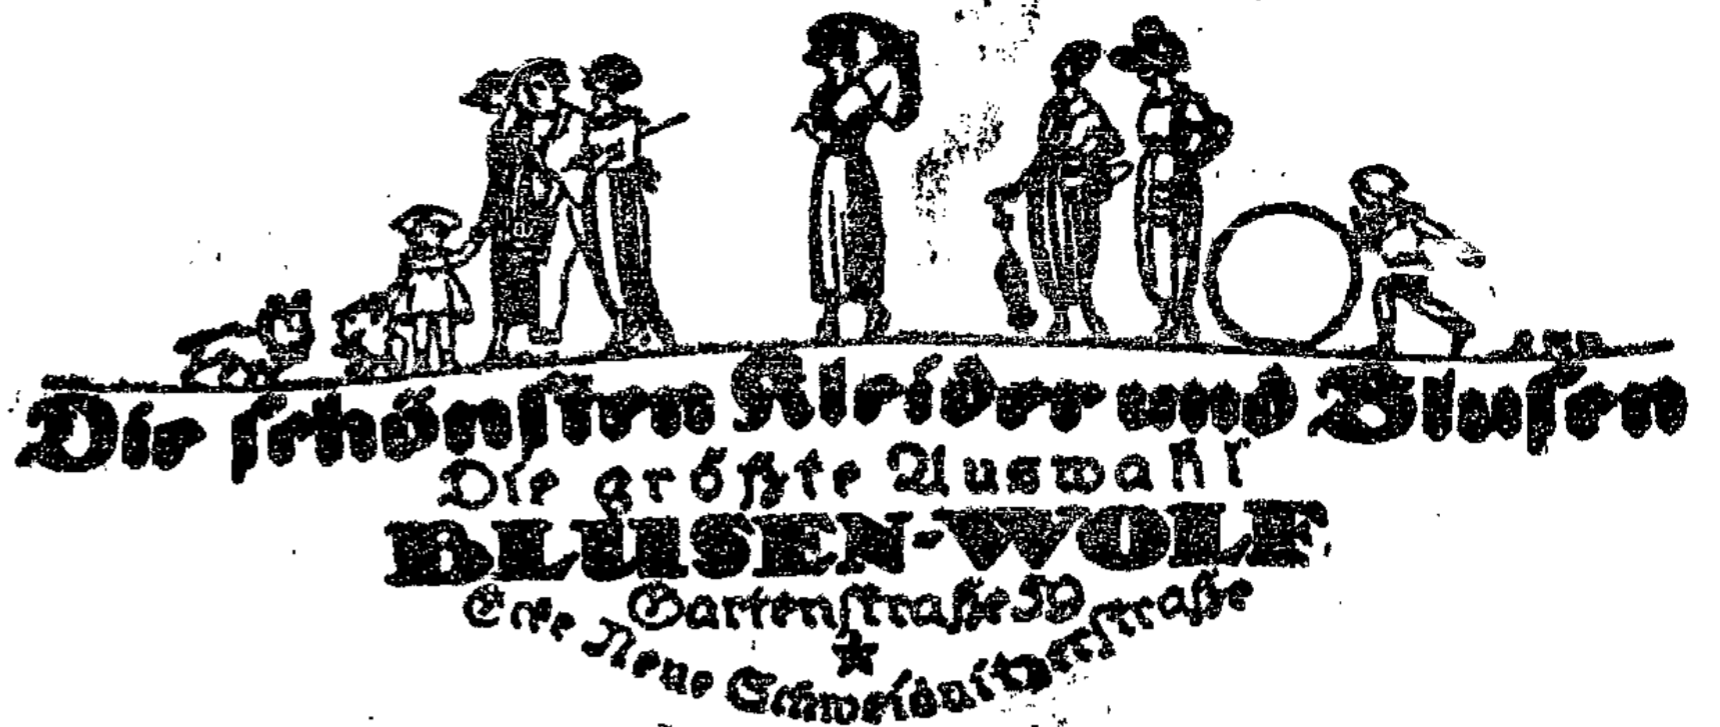 Die schönsten Kleider und Blusen
Die größte Auswahl
BLUSEN-WOLF
Gartenstraße 59
Ecke Neue Schweidnitzerstraße